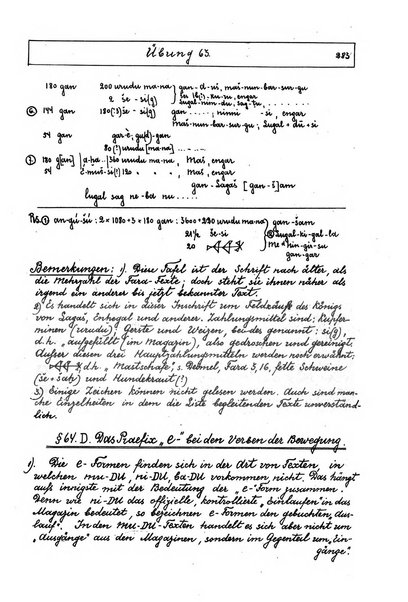 Übung 63. 283
180 gan 200 urudu ma-na gan-
2 še-si(g)
⑥ 144 gan 180(?5) še-si(g) gan ninni -si, engar
Maš-nun-bar-sur-gu, lugal + du + si
54 gan gar-è, gu(d)-gan
80(!) urudu [ma-na]
⑦ 180 g[an] 360 urudu ma-na, Maš, engar
54 120 " ", Maš, engar
gan-Lagaš [gan-š]am
lugal sag ne-ba nu
Rs. ① an-gú-šú: 2×1080+3×180 gan: 3600+220 urudu ma-na gan-šam
še-si lugal-ki-gal-la
20 Me nin-gir-su
gan-gar
Bemerkungen: 1). Diese Tafel ist der Schrift nach älter, als
die Mehrzahl der Fara-Texte; doch steht sie ihnen näher als
irgend ein anderer bis jetzt bekannter Text.
2) Es handelt sich in dieser Inschrift um Feldkäufe des Königs
von Lagaš, Enhegal und anderer. Zahlungsmittel sind: Kupfer-
minen (urudu), Gerste und Weizen, beides genannt: si(g),
d.h. „aufgefüllt (im Magazin), also gedroschen und gereinigt.
Außer diesen drei Hauptzahlungsmitteln werden noch erwähnt:
d.h. „Mastschafe", s. Deimel, Fara 3, 16, fette Schweine
(še + šah) und Hundekraut (!)
3) Einige Zeichen können nicht gelesen werden. Auch sind man-
che Einzelheiten in dem die Liste begleitenden Texte unverständ-
lich.
§ 64. D. Das Praefix „e-" bei den Verben der Bewegung.
1). Die e-Formen finden sich in der Art von Texten, in
welchen mu-DU, ni-DU, ba-DU vorkommen, nicht. Das hängt
aufs innigste mit der Bedeutung der „e"-Form zusammen.
Denn wie ni-DU das offizielle, kontrollierte „Einlaufen" in das
Magazin bedeutet, so bezeichnen e-Formen den gebuchten „Aus-
lauf". In den mu-DU-Texten handelt es sich aber nicht um
„Ausgänge" aus den Magazinen, sondern im Gegenteil um „Ein-
gänge".